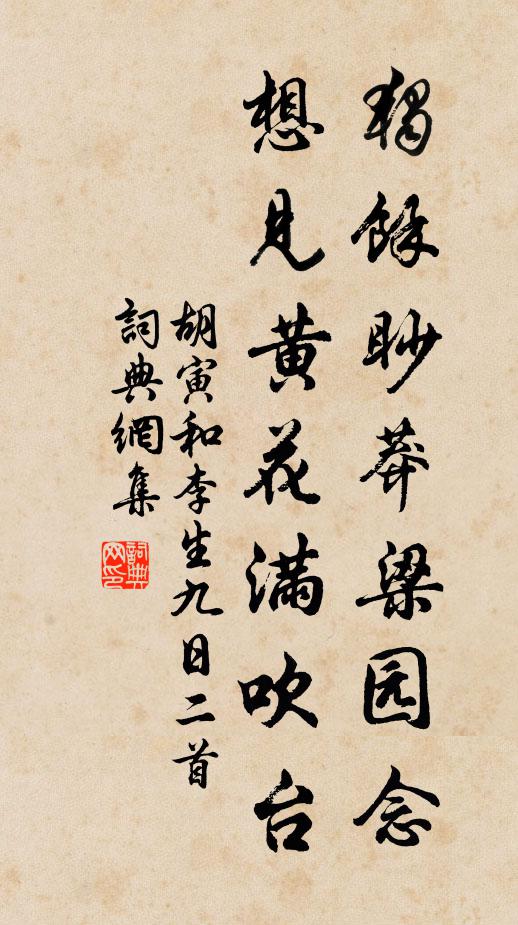 独餘眇莽梁园念
想见黄花满吹台
胡寅和李生九日二首
詞典網集
詞典网印